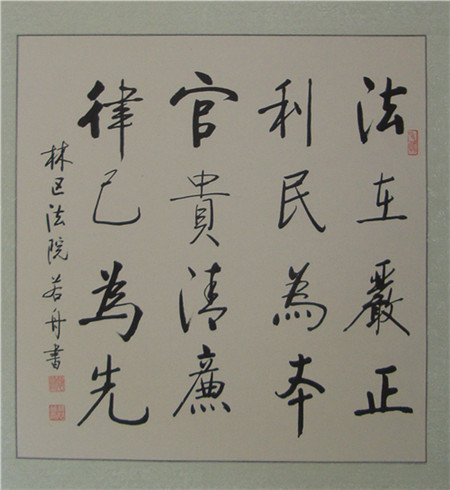 法在嚴正
利民為本
官貴清廉
律己為先
林区法院若舟書